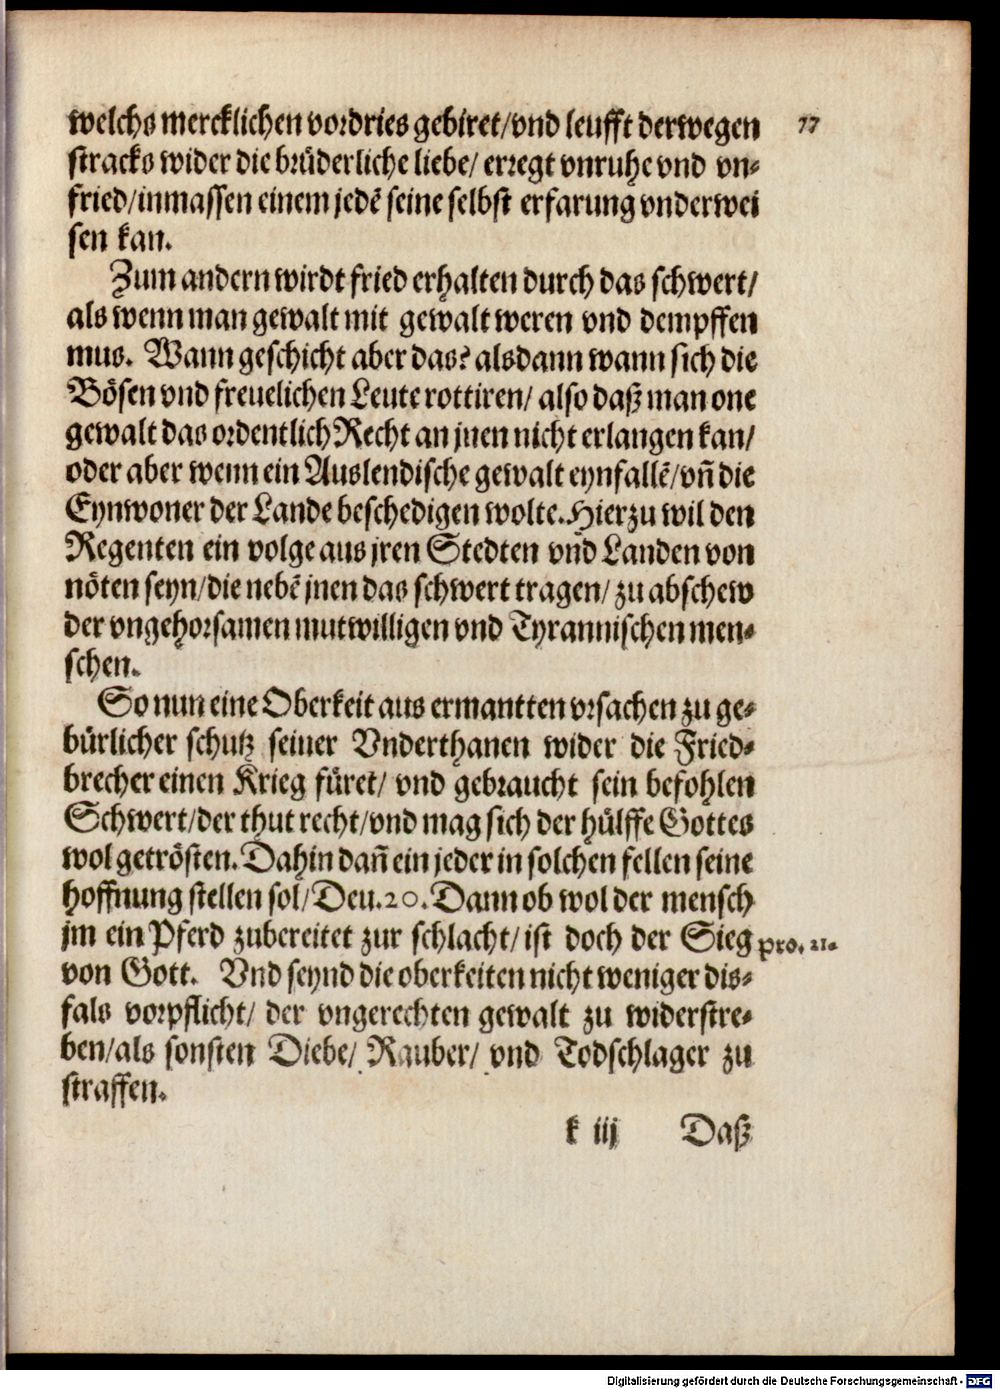 welchs mercklichen vordries gebiret/vnd leufft derwegen 77
stracks wider die brüderliche liebe/ erregt vnruhe vnd vn-
fried/inmassen einem jedē seine selbst erfarung vnderwei
sen kan.
Zum andern wirdt fried erhalten durch das schwert/
als wenn man gewalt mit gewalt weren vnd dempffen
mus. Wann geschicht aber das? alsdann wann sich die
Bösen vnd freuelichen Leute rottiren/ also daß man one
gewalt das ordentlich Recht an jnen nicht erlangen kan/
oder aber wenn ein Auslendische gewalt eynfallē/vñ die
Eynwoner der Lande beschedigen wolte. Hierzu wil den
Regenten ein volge aus jren Stedten vnd Landen von
nöten seyn/die nebē jnen das schwert tragen/ zu abschew
der vngehorsamen mutwilligen vnd Tyrannischen men-
schen.
So nun eine Oberkeit aus ermantten vrsachen zu ge-
bürlicher schutz seiner Vnderthanen wider die Fried-
brecher einen Krieg füret/ vnd gebraucht sein befohlen
Schwert/der thut recht/vnd mag sich der hülffe Gottes
wol getrösten. Dahin dañ ein jeder in solchen fellen seine
hoffnung stellen sol/Deu.20. Dann ob wol der mensch
jm ein Pferd zubereitet zur schlacht/ist doch der Sieg pro. 21.
von Gott. Vnd seynd die oberkeiten nicht weniger dis-
fals vorpflicht/ der vngerechten gewalt zu widerstre-
ben/als sonsten Diebe/ Rauber/ vnd Todschlager zu
straffen.
k iij Daß
Digitalisierung gefördert durch die Deutsche Forschungsgemeinschaft - DFG